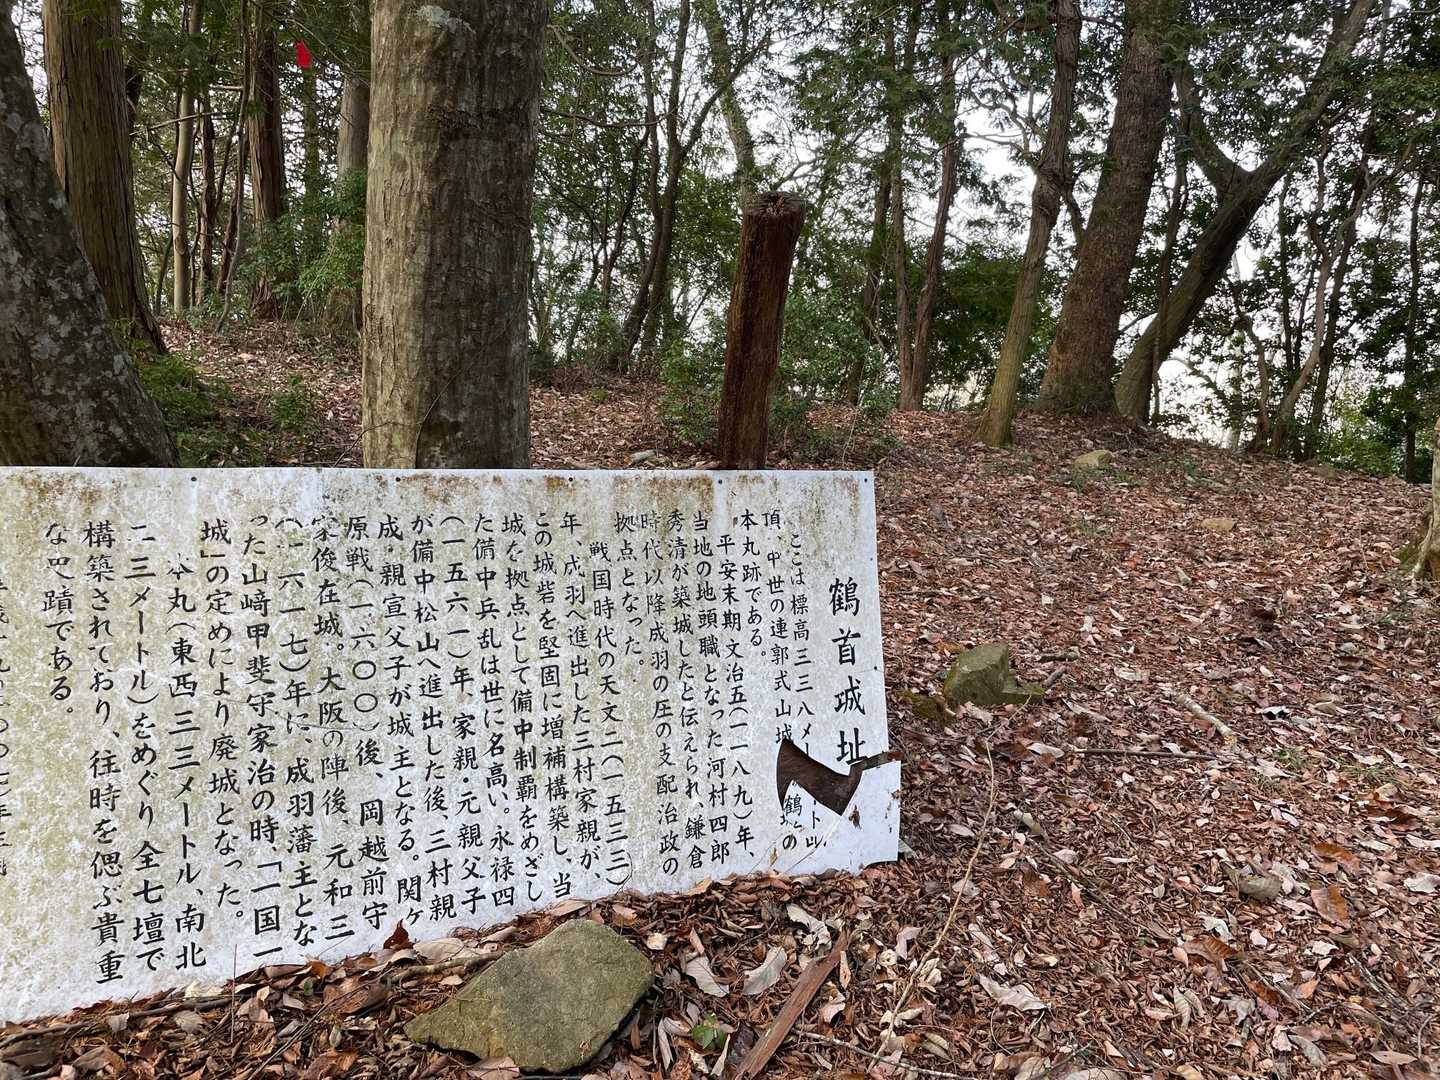 鶴首城址
ここは標高三三八メート山
頂、中世の連郭式山城 鶴 の
本丸跡である。
平安末期文治五(一一八九)年、
当地の地頭職となった河村四郎
秀清が築城したと伝えられ、鎌倉
時代以降成羽の庄の支配治政の
拠点となった。
戦国時代の天文二(一五三三)
年、成羽へ進出した三村家親が、
この城砦を堅固に増補構築し、当
城を拠点として備中制覇をめざし
た備中兵乱は世に名高い。永禄四
(一五六一)年、家親・元親父子
が備中松山へ進出した後、三村親
成・親宣父子が城主となる。関ヶ
原戦(一六〇〇)後、岡越前守
家俊在城。大阪の陣後、元和三
(一六一七)年に、成羽藩主とな
った山﨑甲斐守家治の時、「一国一
城」の定めにより廃城となった。
本丸(東西三三メートル、南北
二三メートル)をめぐり全七壇で
構築されており、往時を偲ぶ貴重
な史蹟である。